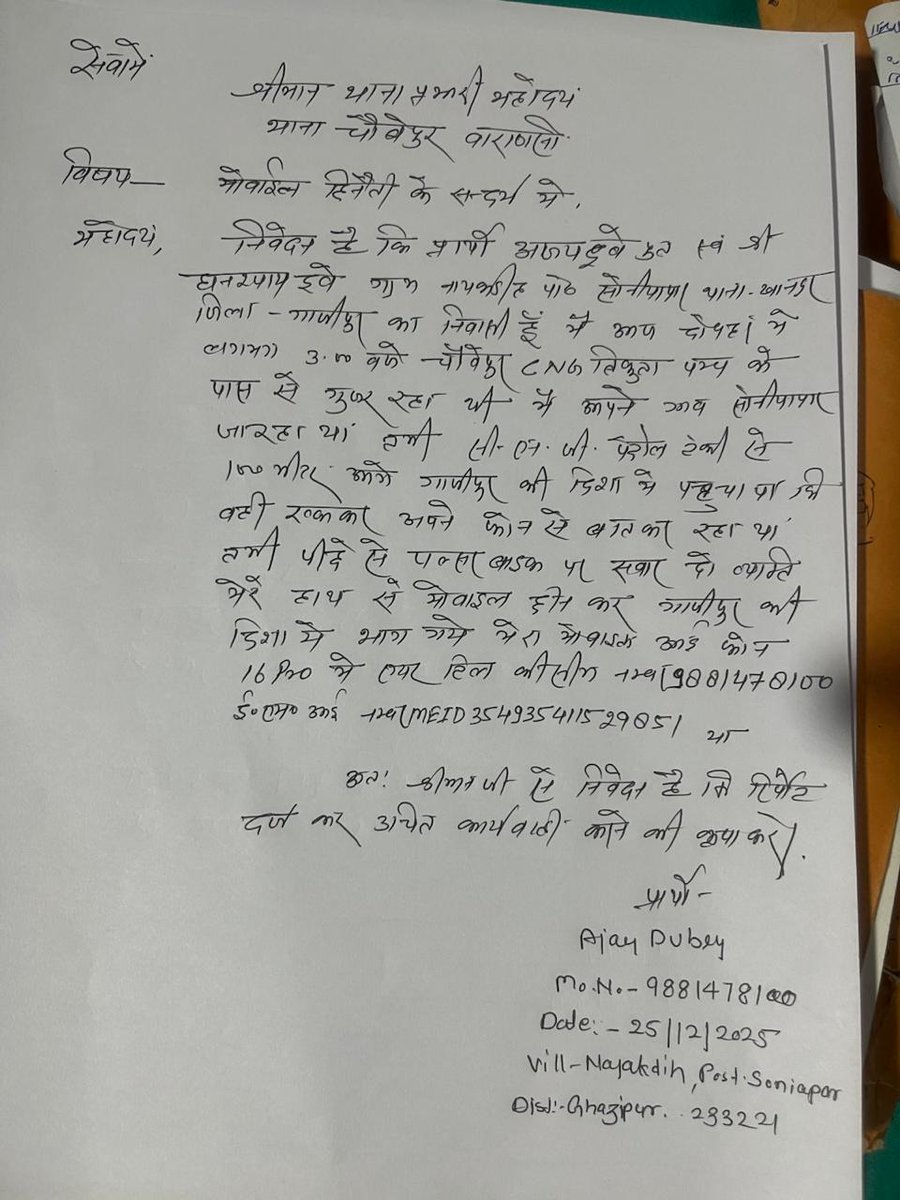 सेवामें
श्रीमान थाना प्रभारी महोदयं
थाना चौवेपुर वाराणसी
विषय— मोवाईल छिनैती के सन्दर्भ मे,
महोदयं, निवेदन है कि प्रार्थी अजय दूवे पुत्र स्वं श्री
घनश्याम दुवे ग्राम नायकडीह पोo सोनीयापार थाना-खानपुर
जिला-गाजीपुर का निवासी हूँ मै आज दोपहर मे
लगभग 3.00 वजे चौवेपुर CNG पम्प के
पास से गुजर रहा था मै अपने गाव सोनीयापार
जा रहा थां तभी सी.एन.जी. पेट्रोल टंकी से
100 मीटर आगे गाजीपुर की दिशा मे पहुचा था की
वही रूककर अपने फोन से बात कर रहा थां
तभी पीछे से पल्सर बाइक पर सवार दो व्यक्ति
मेरे हाथ से मोवाइल छीन कर गाजीपुर की
दिशा मे भाग गये मेरा मोवाइल आई फोन
16 Pro मे एयर टेल की सीम नम्बर 9881478100
ई०एम० आई नम्बर MEID 35493541152985१ था
अतः श्रीमान जी से निवेदन है कि रिपोर्ट
दर्ज कर उचित कार्यवाही करने की कृपा करे।
प्रार्थी-
Ajay Dubey
Mo.No.- 9881478100
Date:- 25/12/2025
Vill-Nayakdih, Post-Soniapar
Dist:-Ghazipur. 233221